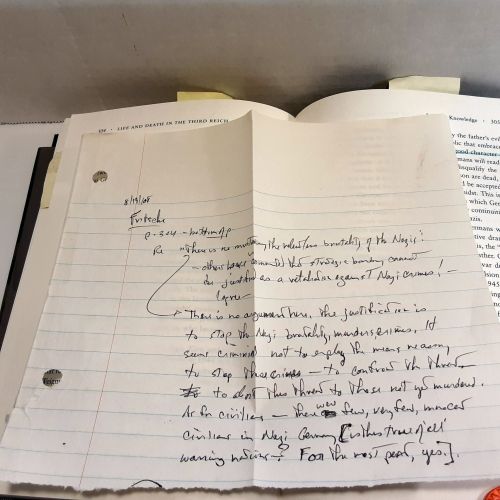 304 · LIFE AND DEATH IN THE THIRD REICH
Knowledge · 305
y the father's
lic that embrac
good character
mans will read
disqualify the
on are dead,
d be accepted
which Ger
continuin
Nazis.
ative dra
n, the "
over the
war d
8/19/08
Fritzsche
p. 304 - bottom of p
Re "There is no mistaking the relentless brutality of the Nazis":
- others have commented that strategic bombing cannot
be justified as a retaliation against Nazi crimes! -
There is no argument here. The justification is
to stop the Nazi brutality, murders, crimes. It
seems criminal not to employ the means necessary
to stop these crimes - to confront the threat,
to abort this threat to those not yet murdered.
As for civilians - there were few, very few, innocent
civilians in Nazi Germany [is this true of all
warring nations? For the most part, yes.].